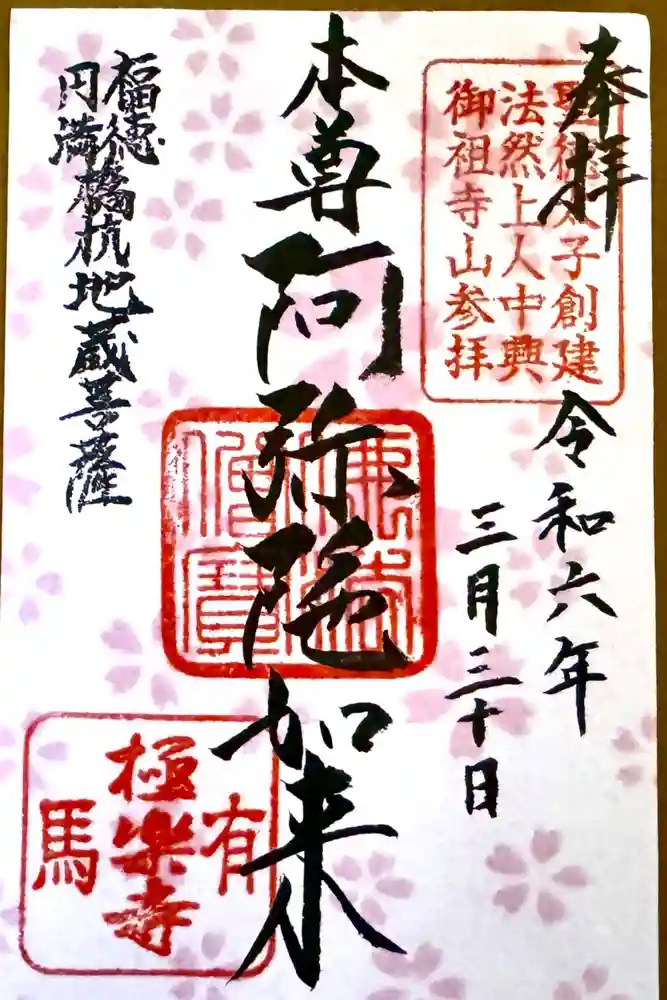 奉拝
聖徳太子創建
法然上人中興
御祖寺山参拝
令和六年
三月三十日
本尊阿弥陀如来
仏法僧寶
福徳
円満
橋杭地蔵菩薩
有馬
極楽寺